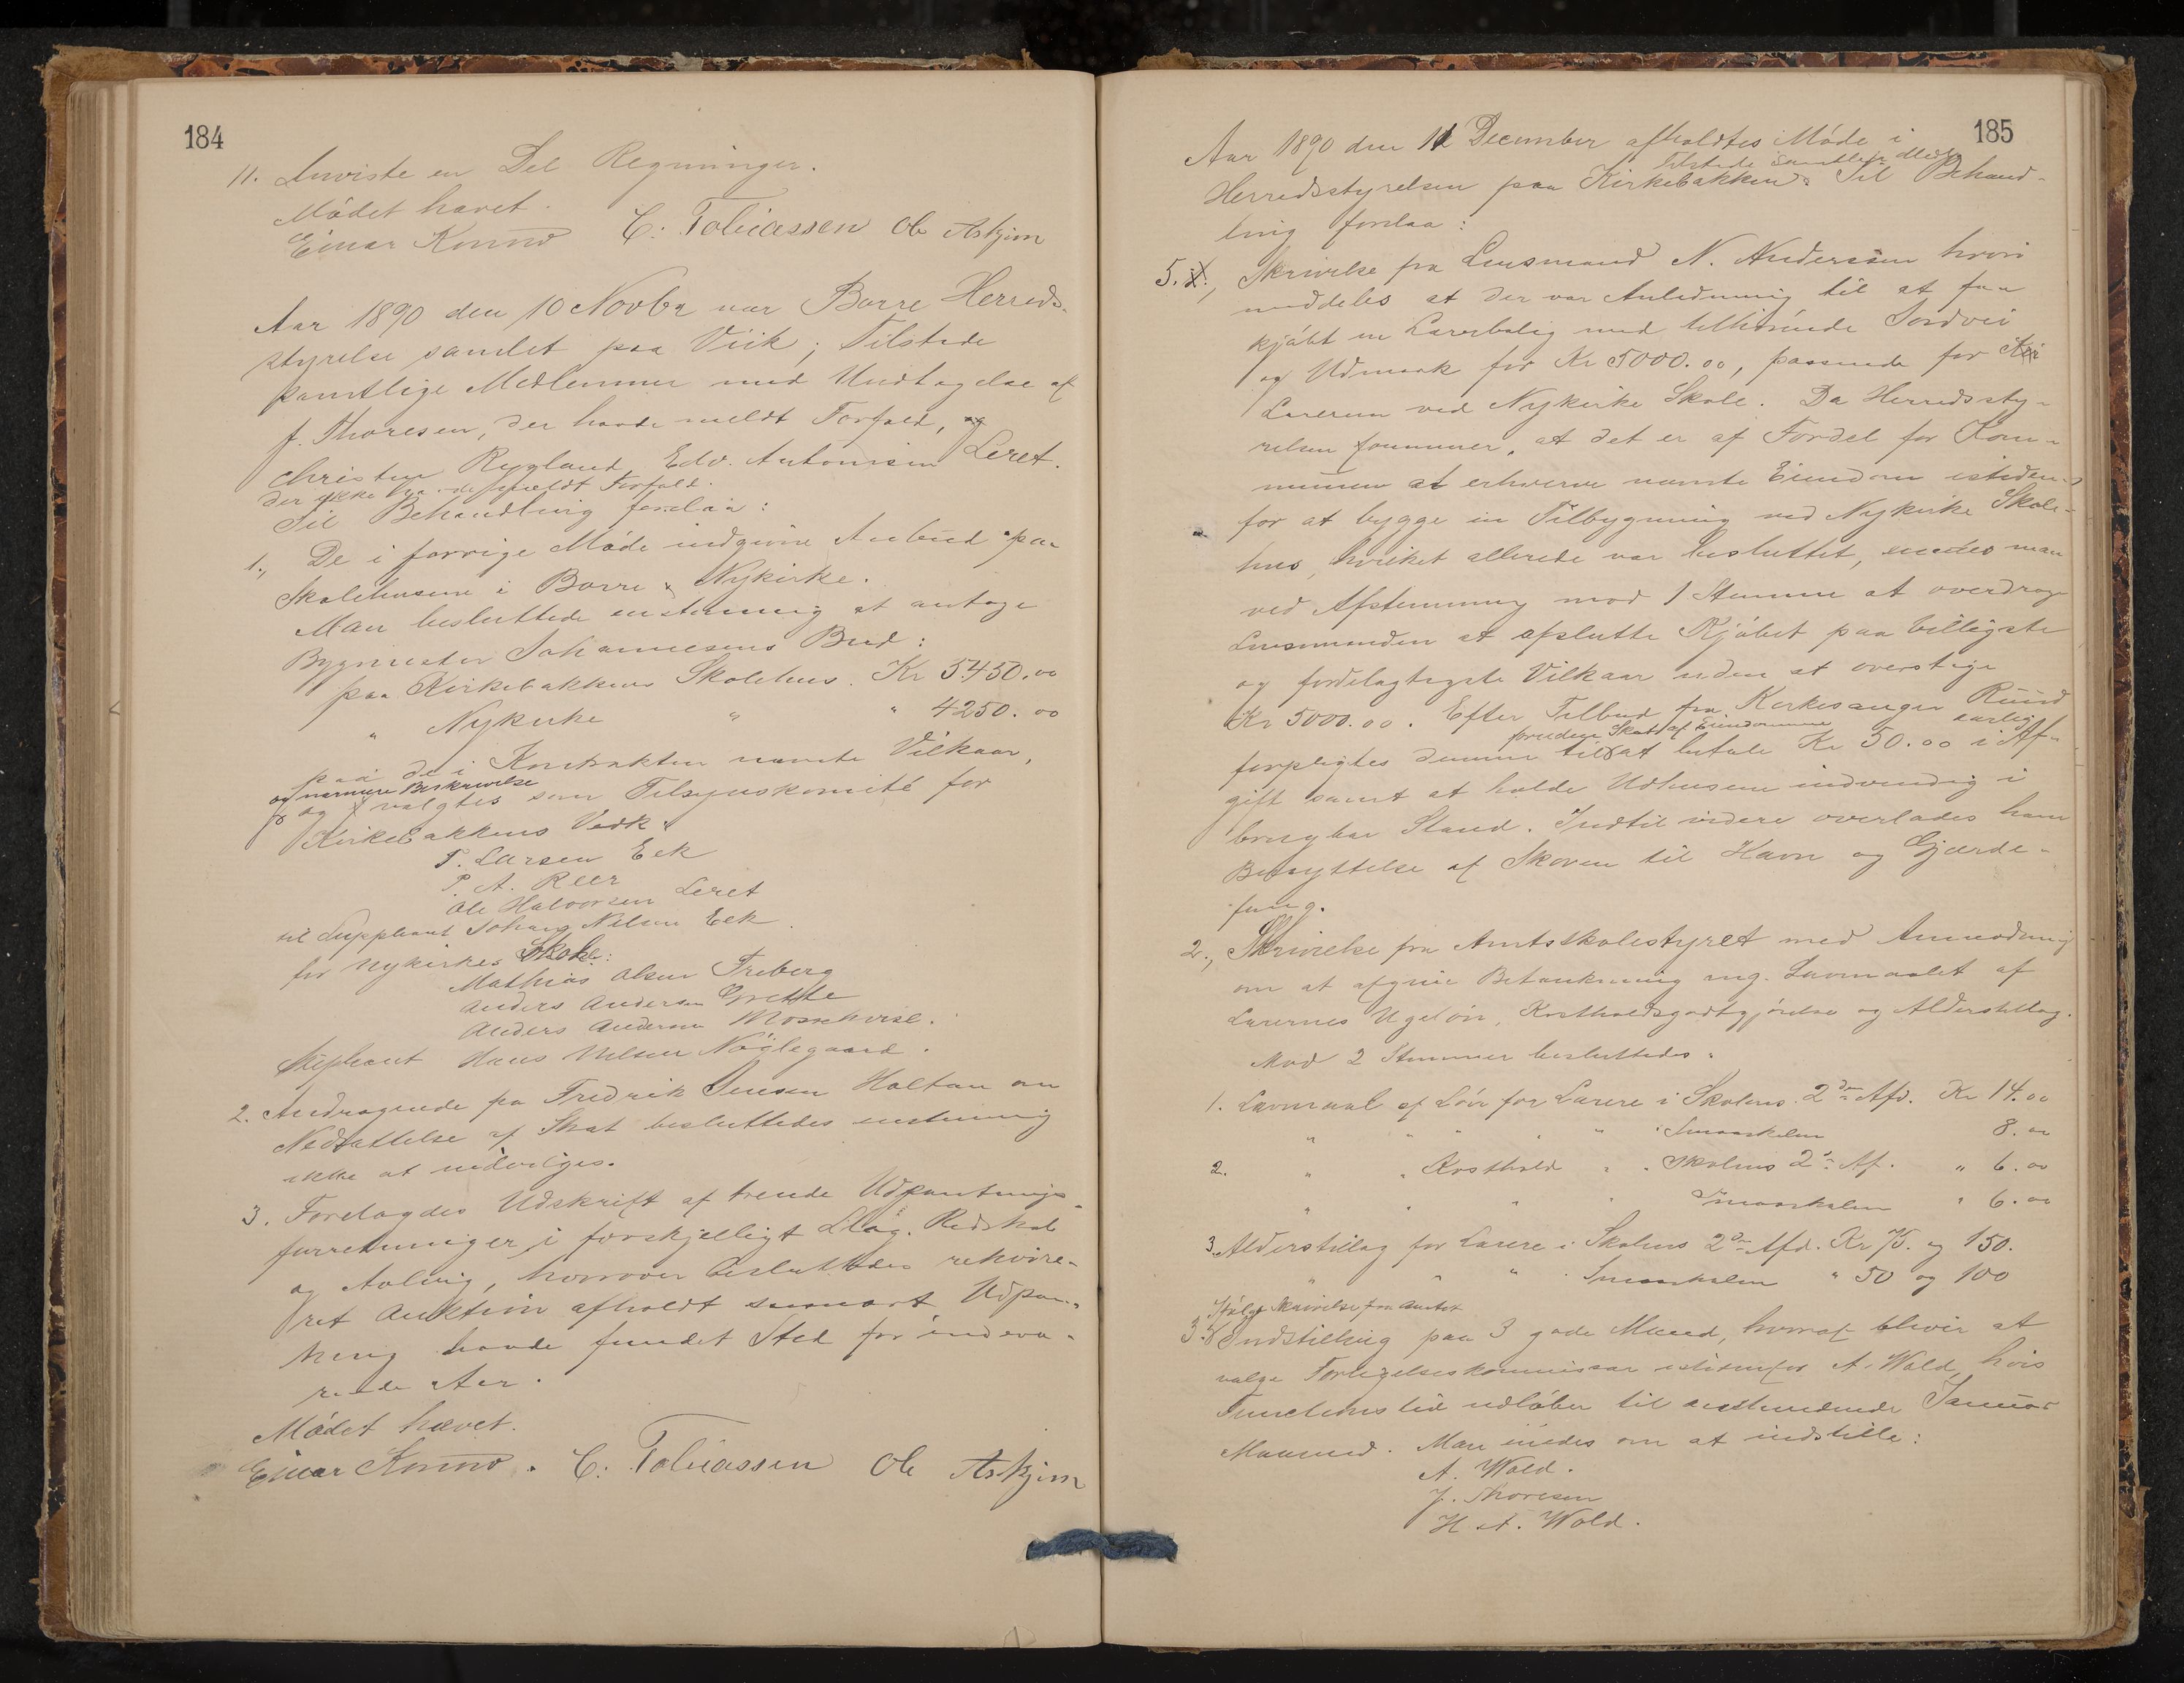 184
11. Anviste en Del Regninger.
Mødet hævet.
Einar Konow C. Tobiassen Ole Askjem
Aar 1890 den 10 Novbr var Borre Herreds-
styrelse samlet paa Viik; Tilstede
samtlige Medlemmer med Undtagelse af
J. Thoresen, der havde meldt Forfald, og
Christen Rygland, Edv. Antonisen Leret.
der ikke havde meldt Forfald.
Til Behandling forelaa:
1., De i forrige Møde indgivne Anbud paa
Skolehusene i Borre & Nykirke.
Man besluttede enstemmig at antage
Bygmester Johannesens Bud:
paa Kirkebakkens Skolehus. Kr 5450.00
" Nykirke " " 4250.00
paa de i Kontrakten nævnte Vilkaar,
og nærmere Beskrivelse
og valgtes som Tilsynskomité for
Kirkebakkens Vedk.
T. Larsen Eek
P. A. Reer
Ole Halvorsen Leret
til Suppleant Johan Nilsen Eek.
for Nykirkes Skole:
Mathias Olsen Freberg
Anders Andersen Grette
Anders Andersen
Supleant Hans Nilsen Nøglegaard.
2. Andragende fra Fredrik Jensen Holtan om
Nedsættelse af Skat besluttedes enstemmig
ikke at indvilges.
3. Forelagdes Udskrift af trende Udpantnings-
forretninger i forskjelligt Slag. Redskab
og Avling, hvorover besluttedes rekvire-
ret Auktion afholdt snarest. Udpan-
tning havde fundet Sted for indeva-
rende Aar.
Mødet hævet.
Einar Konow. C. Tobiassen Ole Askjem
185
Aar 1890 den 11 December afholdtes Møde i
Tilstede samtlige Medl.
Herredsstyrelsen paa Kirkebakken. Til Behand-
ling forelaa:
5. 1., Skrivelse fra Lensmand N. Anderssen hvori
meddeles at der var Anledning til at faa
kjøbt en Lærerbolig med tilhørende Jordvei
og Udmark for Kr 5000.00, passende for
Læreren ved Nykirke Skole. Da Herredssty-
relsen formener, at det er af Fordel for Kom-
munen at erhverve nævnte Eiendom isteden-
for at bygge en Tilbygning ved Nykirke Skole-
hus, hvilket allerede var besluttet, enedes man
ved Afstemning mod 1 Stemme at overdrage
Lensmanden at afslutte Kjøbet paa billigste
og fordelagtigste Vilkaar uden at overstige
Kr 5000.00. Efter Tilbud fra Kirkesanger Ruud
foruden Skat af Eiendommen aarlig
forpligtes denne til at betale Kr 50.00 i Af-
gift samt at holde Udhusene indvendig i
brugbar Stand. Indtil videre overlades ham
Benyttelse af Skoven til Havn og Gjærde-
fang.
2., Skrivelse fra Amtsskolestyret med Anmodning
om at afgive Betænkning ang. Lavmaalet af
Lærernes Ugeløn, Kostholdsgodtgjørelse og Alderstillæg.
Mod 2 Stemmer besluttedes:
1. Lavmaal af Løn for Lærere i Skolens 2den Afd. Kr 14.00
" " " " " " Smaaskolen 8.00
2. " " Kosthold " " Skolens 2den Af. " 6.00
" " " " Smaaskolen " 6.00
3. Alderstillæg for Lærere i Skolens 2den Afd. Kr 75. og 150.
" " " Smaaskolen " 50 og 100
Ifølge Skrivelse fra Amtet
3. Indstilling paa 3 gode Mænd, hvoraf bliver at
vælge Forligelseskommissær istedenfor A. Wold, hvis
Functionstid udløber til anstundende Januar
Maaned. Man enedes om at indstille:
A. Wold.
J. Thoresen
H. A. Wold.